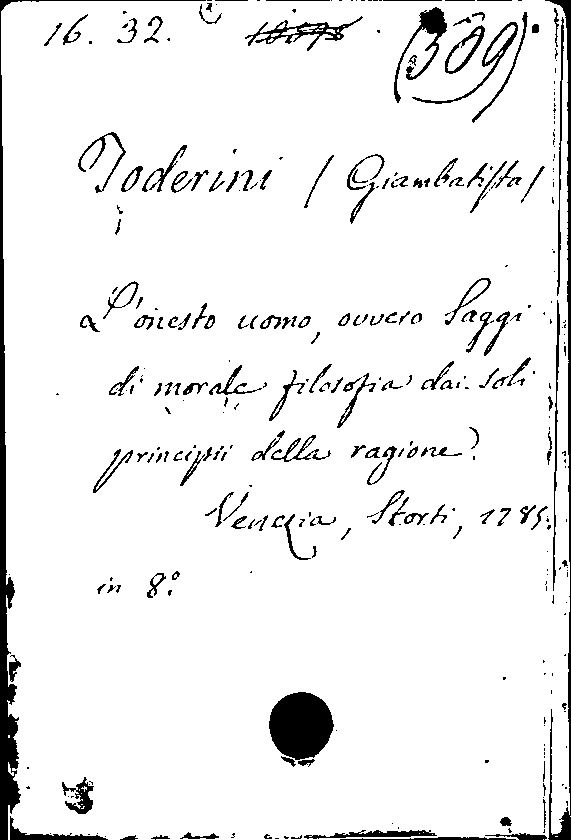 16. 32. (309)
Toderini / Giambatista /
L'onesto uomo, ovvero Saggi
di morale filosofia dai soli
principii della ragione.
Venezia, Storti, 1785.
in 8.º